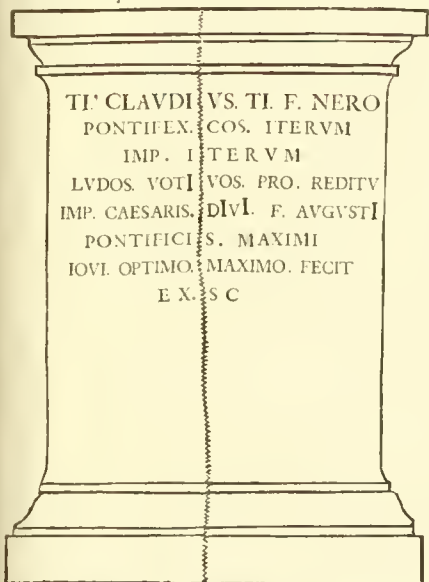 TI. CLAVDIVS. TI. F. NERO
PONTIFEX. COS. ITERVM
IMP. ITERVM
LVDOS. VOTIVOS. PRO. REDITV
IMP. CAESARIS. DIVI. F. AVGVSTI
PONTIFICIS. MAXIMI
IOVI. OPTIMO. MAXIMO. FECIT
EX. S C